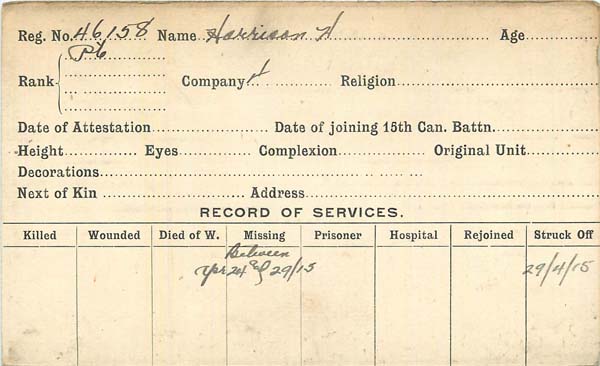 Reg. No. 46158 Name Harrison H Age
Pte
Rank Company Religion
Date of Attestation Date of joining 15th Can. Battn.
Height Eyes Complexion Original Unit
Decorations
Next of Kin Address
RECORD OF SERVICES.
Killed Wounded Died of W. Missing Prisoner Hospital Rejoined Struck Off
Between
24 & 29/15 29/4/15